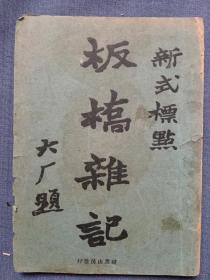 新式標點
板橋雜記
大厂題